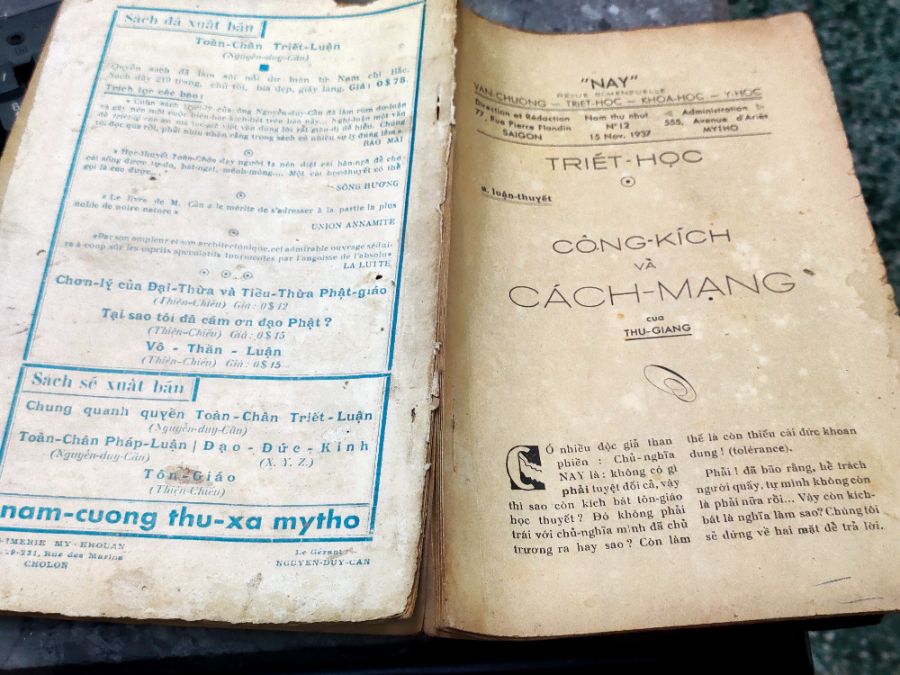 Sách đã xuất bản
Toàn-Chân Triết-Luận
(Nguyễn-duy-Cần)
Quyển sách đã làm sôi nổi dư luận từ Nam chí Bắc.
Sách dày 219 trang, chữ tốt, bìa đẹp, giấy láng, Giá: 0$75.
Trích lục các báo:
« Cuốn sách triết-lý của ông Nguyễn-duy-Cần đã làm cúm dư-luận
tôi đọc qua rồi, phải nhìn nhận rằng trong sách có nhiều sự lý dung lắm.»
BAO MAI
« Học-thuyết Toàn-Chân dạy người ta nên diệt cái bản-ngã để cho
cái sống được tự-do, bát-ngát, mênh-mông.... Một cái học-thuyết có thể
gọi là cao được...»
SÔNG HƯƠNG
« Le livre de M. Cần a le mérite de s'adresser à la partie la plus
noble de notre nature »
UNION ANNAMITE
«Par son ampleur et son architectonique, cet admirable ouvrage séduira
à coup sûr les esprits spéculatifs tourmentés par l'angoisse de l'absolu»
LA LUTTE
Chơn-lý của Đại-Thừa và Tiểu-Thừa Phật-giáo
(Thiện-Chiếu) Giá: 0$12
Tại sao tôi đã cám ơn đạo Phật ?
(Thiện-Chiếu) Giá: 0$15
Vô - Thần - Luận
(Thiện-Chiếu) Giá: 0$15
Sách sẽ xuất bản
Chung quanh quyển Toàn-Chân Triết-Luận
(Nguyễn-duy-Cần)
Toàn-Chân Pháp-Luận | Đạo - Đức - Kinh
(Nguyễn-duy-Cần) (X. Y. Z.)
Tôn-Giáo
(Thiện-Chiếu)
nam-cuong thu-xa mytho
IMERIE MY-KHOUAN
Rue des Marins
CHOLON
Le Gérant:
NGUYEN-DUY-CAN
"NAY"
REVUE BI-MENSUELLE
VĂN-CHƯƠNG — TRIẾT-HỌC — KHOA-HỌC — Y-HỌC
Direction et Rédaction
77, Rue Pierre Flandin
SAIGON
Nam thu nhut
N°12
15 Nov. 1937
Administration
555, Avenue d'Ariès
MYTHO
TRIẾT-HỌC
a. luận-thuyết
CÔNG-KÍCH
VÀ
CÁCH-MẠNG
của
THU-GIANG
CÓ nhiều độc giả than
phiền : Chủ-nghĩa
NAY là : không có gì
phải tuyệt đối cả, vậy
thì sao còn kích bát tôn-giáo
học thuyết ? Đó không phải
trái với chủ-nghĩa mình đã chủ
trương ra hay sao ? Còn làm
thế là còn thiếu cái đức khoan
dung ! (tolérance).
Phải ! đã bảo rằng, hễ trách
người quấy, tự mình không còn
là phải nữa rồi... Vậy còn kích-
bát là nghĩa làm sao? Chúng tôi
sẽ đứng về hai mặt để trả lời.